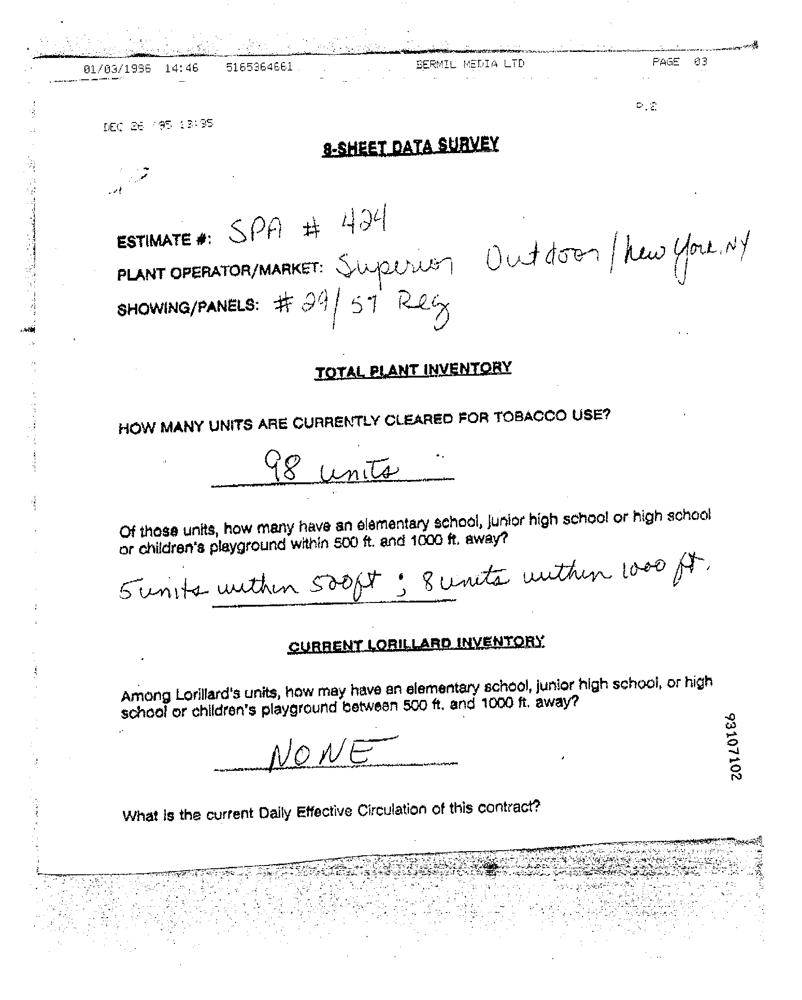 01/03/1996 14:46 5165364661 BERMIL MEDIA LTD PAGE 03
P.2
DEC 26 '95 13:35
8-SHEET DATA SURVEY
ESTIMATE #: SPA # 424
PLANT OPERATOR/MARKET: Superior Outdoor / New York, NY
SHOWING/PANELS: # 29/57 Reg
TOTAL PLANT INVENTORY
HOW MANY UNITS ARE CURRENTLY CLEARED FOR TOBACCO USE?
98 units
Of those units, how many have an elementary school, junior high school or high school
or children's playground within 500 ft. and 1000 ft. away?
5 units within 500ft ; 8 units within 1000 ft.
CURRENT LORILLARD INVENTORY
Among Lorillard's units, how may have an elementary school, junior high school, or high
school or children's playground between 500 ft. and 1000 ft. away?
NONE
93107102
What is the current Daily Effective Circulation of this contract?